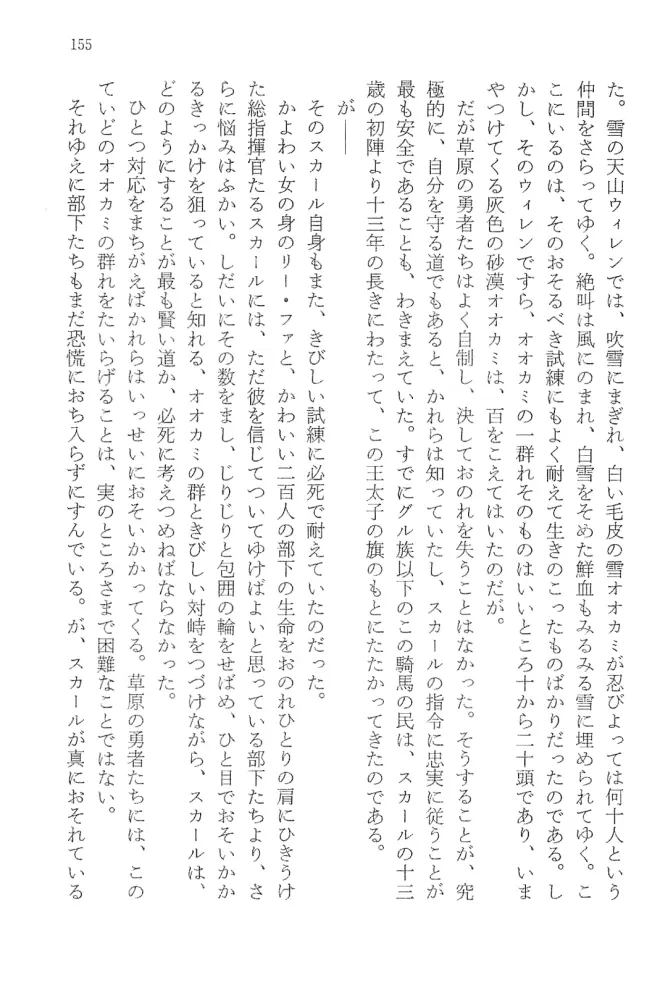 155
た。雪の天山ウィレンでは、吹雪にまぎれ、白い毛皮の雪オオカミが忍びよっては何十人という
仲間をさらってゆく。絶叫は風にのまれ、白雪をそめた鮮血もみるみる雪に埋められてゆく。こ
こにいるのは、そのおそるべき試練にもよく耐えて生きのこったものばかりだったのである。し
かし、そのウィレンですら、オオカミの一群れそのものはいいところ十から二十頭であり、いま
やつけてくる灰色の砂漠オオカミは、百をこえてはいたのだが。
だが草原の勇者たちはよく自制し、決しておのれを失うことはなかった。そうすることが、究
極的に、自分を守る道でもあると、かれらは知っていたし、スカールの指令に忠実に従うことが
最も安全であることも、わきまえていた。すでにグル族以下のこの騎馬の民は、スカールの十三
歳の初陣より十三年の長きにわたって、この王太子の旗のもとにたたかってきたのである。
が――
そのスカール自身もまた、きびしい試練に必死で耐えていたのだった。
かよわい女の身のリー・ファと、かわいい二百人の部下の生命をおのれひとりの肩にひきうけ
た総指揮官たるスカールには、ただ彼を信じてついてゆけばよいと思っている部下たちより、さ
らに悩みはふかい。しだいにその数をまし、じりじりと包囲の輪をせばめ、ひと目でおそいかか
るきっかけを狙っていると知れる、オオカミの群ときびしい対峙をつづけながら、スカールは、
どのようにすることが最も賢い道か、必死に考えつめねばならなかった。
ひとつ対応をまちがえばかれらはいっせいにおそいかかってくる。草原の勇者たちには、この
ていどのオオカミの群れをたいらげることは、実のところさまで困難なことではない。
それゆえに部下たちもまだ恐慌におち入らずにすんでいる。が、スカールが真におそれている